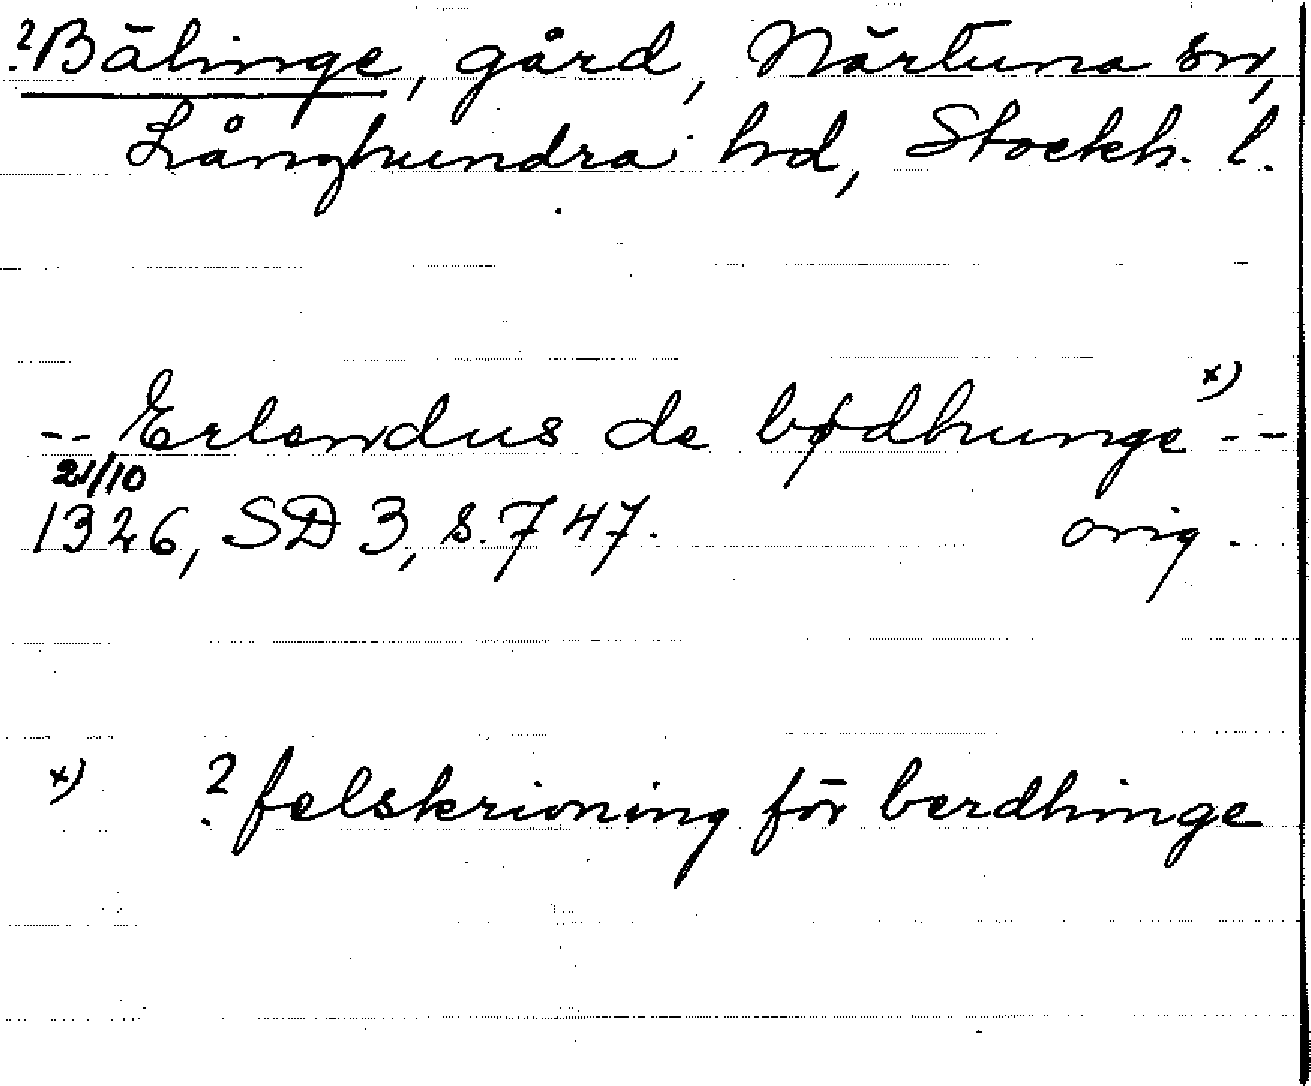 ?Bälinge, gård, Närtuna sn,
Långhundra hd, Stockh. l.
-- Erlendus de bødhunge x) --
21/10
1326, SD 3, s. 747. orig.
x) ? felskrivning för berdhinge